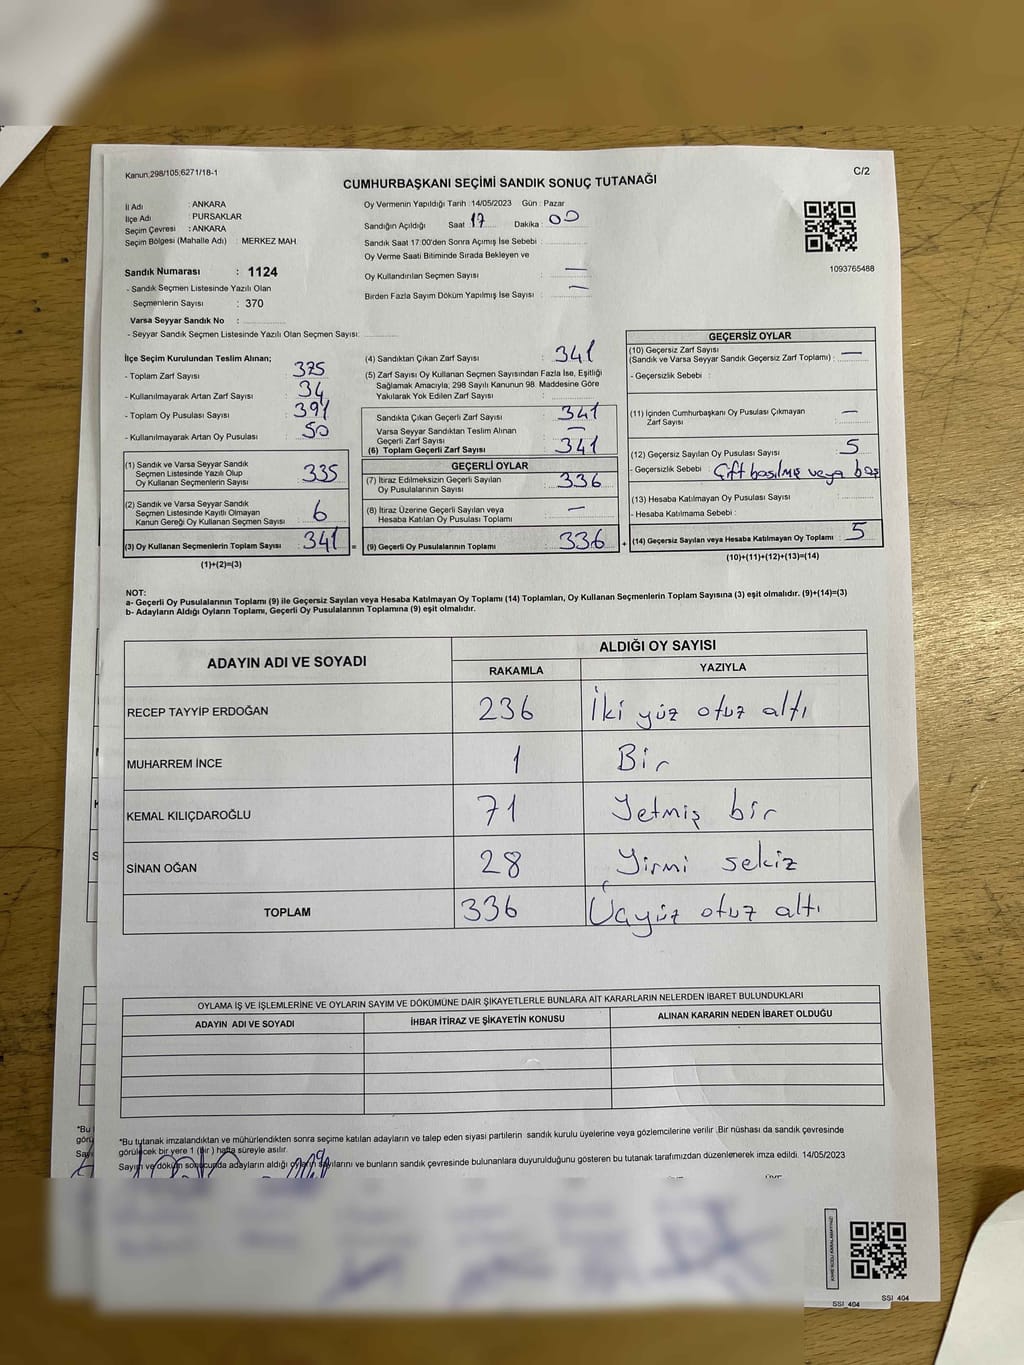 Kanun;298/105;6271/18-1
C/2
CUMHURBAŞKANI SEÇİMİ SANDIK SONUÇ TUTANAĞI
İl Adı : ANKARA
İlçe Adı : PURSAKLAR
Seçim Çevresi : ANKARA
Seçim Bölgesi (Mahalle Adı) : MERKEZ MAH.
Sandık Numarası : 1124
- Sandık Seçmen Listesinde Yazılı Olan
Seçmenlerin Sayısı : 370
Varsa Seyyar Sandık No :
- Seyyar Sandık Seçmen Listesinde Yazılı Olan Seçmen Sayısı:
Oy Vermenin Yapıldığı Tarih :14/05/2023 Gün : Pazar
Sandığın Açıldığı Saat : 17 Dakika : 00
Sandık Saat 17:00'den Sonra Açımış İse Sebebi :
Oy Verme Saati Bitiminde Sırada Bekleyen ve
Oy Kullandırılan Seçmen Sayısı : —
Birden Fazla Sayım Döküm Yapılmış İse Sayısı : —
1093765488
İlçe Seçim Kurulundan Teslim Alınan;
- Toplam Zarf Sayısı : 375
- Kullanılmayarak Artan Zarf Sayısı : 34
- Toplam Oy Pusulası Sayısı : 391
- Kullanılmayarak Artan Oy Pusulası : 50
(1) Sandık ve Varsa Seyyar Sandık
Seçmen Listesinde Yazılı Olup
Oy Kullanan Seçmenlerin Sayısı : 335
(2) Sandık ve Varsa Seyyar Sandık
Seçmen Listesinde Kayıtlı Olmayan
Kanun Gereği Oy Kullanan Seçmen Sayısı : 6
(3) Oy Kullanan Seçmenlerin Toplam Sayısı : 341 =
(1)+(2)=(3)
(4) Sandıktan Çıkan Zarf Sayısı : 341
(5) Zarf Sayısı Oy Kullanan Seçmen Sayısından Fazla İse, Eşitliği
Sağlamak Amacıyla; 298 Sayılı Kanunun 98. Maddesine Göre
Yakılarak Yok Edilen Zarf Sayısı :
Sandıkta Çıkan Geçerli Zarf Sayısı : 341
Varsa Seyyar Sandıktan Teslim Alınan
Geçerli Zarf Sayısı : —
(6) Toplam Geçerli Zarf Sayısı : 341
GEÇERLİ OYLAR
(7) İtiraz Edilmeksizin Geçerli Sayılan
Oy Pusulalarının Sayısı : 336
(8) İtiraz Üzerine Geçerli Sayılan veya
Hesaba Katılan Oy Pusulası Toplamı : —
(9) Geçerli Oy Pusulalarının Toplamı : 336 +
GEÇERSİZ OYLAR
(10) Geçersiz Zarf Sayısı
(Sandık ve Varsa Seyyar Sandık Geçersiz Zarf Toplamı) : —
- Geçersizlik Sebebi :
(11) İçinden Cumhurbaşkanı Oy Pusulası Çıkmayan
Zarf Sayısı : —
(12) Geçersiz Sayılan Oy Pusulası Sayısı : 5
- Geçersizlik Sebebi : Çift basılmış veya boş
(13) Hesaba Katılmayan Oy Pusulası Sayısı :
- Hesaba Katılmama Sebebi :
(14) Geçersiz Sayılan veya Hesaba Katılmayan Oy Toplamı : 5
(10)+(11)+(12)+(13)=(14)
NOT:
a- Geçerli Oy Pusulalarının Toplamı (9) ile Geçersiz Sayılan veya Hesaba Katılmayan Oy Toplamı (14) Toplamları, Oy Kullanan Seçmenlerin Toplam Sayısına (3) eşit olmalıdır. (9)+(14)=(3)
b- Adayların Aldığı Oyların Toplamı, Geçerli Oy Pusulalarının Toplamına (9) eşit olmalıdır.
ADAYIN ADI VE SOYADI
ALDIĞI OY SAYISI
RAKAMLA YAZIYLA
RECEP TAYYİP ERDOĞAN 236 İki yüz otuz altı
MUHARREM İNCE 1 Bir
KEMAL KILIÇDAROĞLU 71 Yetmiş bir
SİNAN OĞAN 28 Yirmi sekiz
TOPLAM 336 Üçyüz otuz altı
OYLAMA İŞ VE İŞLEMLERİNE VE OYLARIN SAYIM VE DÖKÜMÜNE DAİR ŞİKAYETLERLE BUNLARA AİT KARARLARIN NELERDEN İBARET BULUNDUKLARI
ADAYIN ADI VE SOYADI İHBAR İTİRAZ VE ŞİKAYETİN KONUSU ALINAN KARARIN NEDEN İBARET OLDUĞU
*Bu tutanak imzalandıktan ve mühürlendikten sonra seçime katılan adayların ve talep eden siyasi partilerin sandık kurulu üyelerine veya gözlemcilerine verilir .Bir nüshası da sandık çevresinde
görülecek bir yere 1 (bir ) hafta süreyle asılır.
Sayım ve döküm sonucunda adayların aldığı oyların sayılarını ve bunların sandık çevresinde bulunanlara duyurulduğunu gösteren bu tutanak tarafımızdan düzenlenerek imza edildi. 14/05/2023
SSI 404
SSI 404